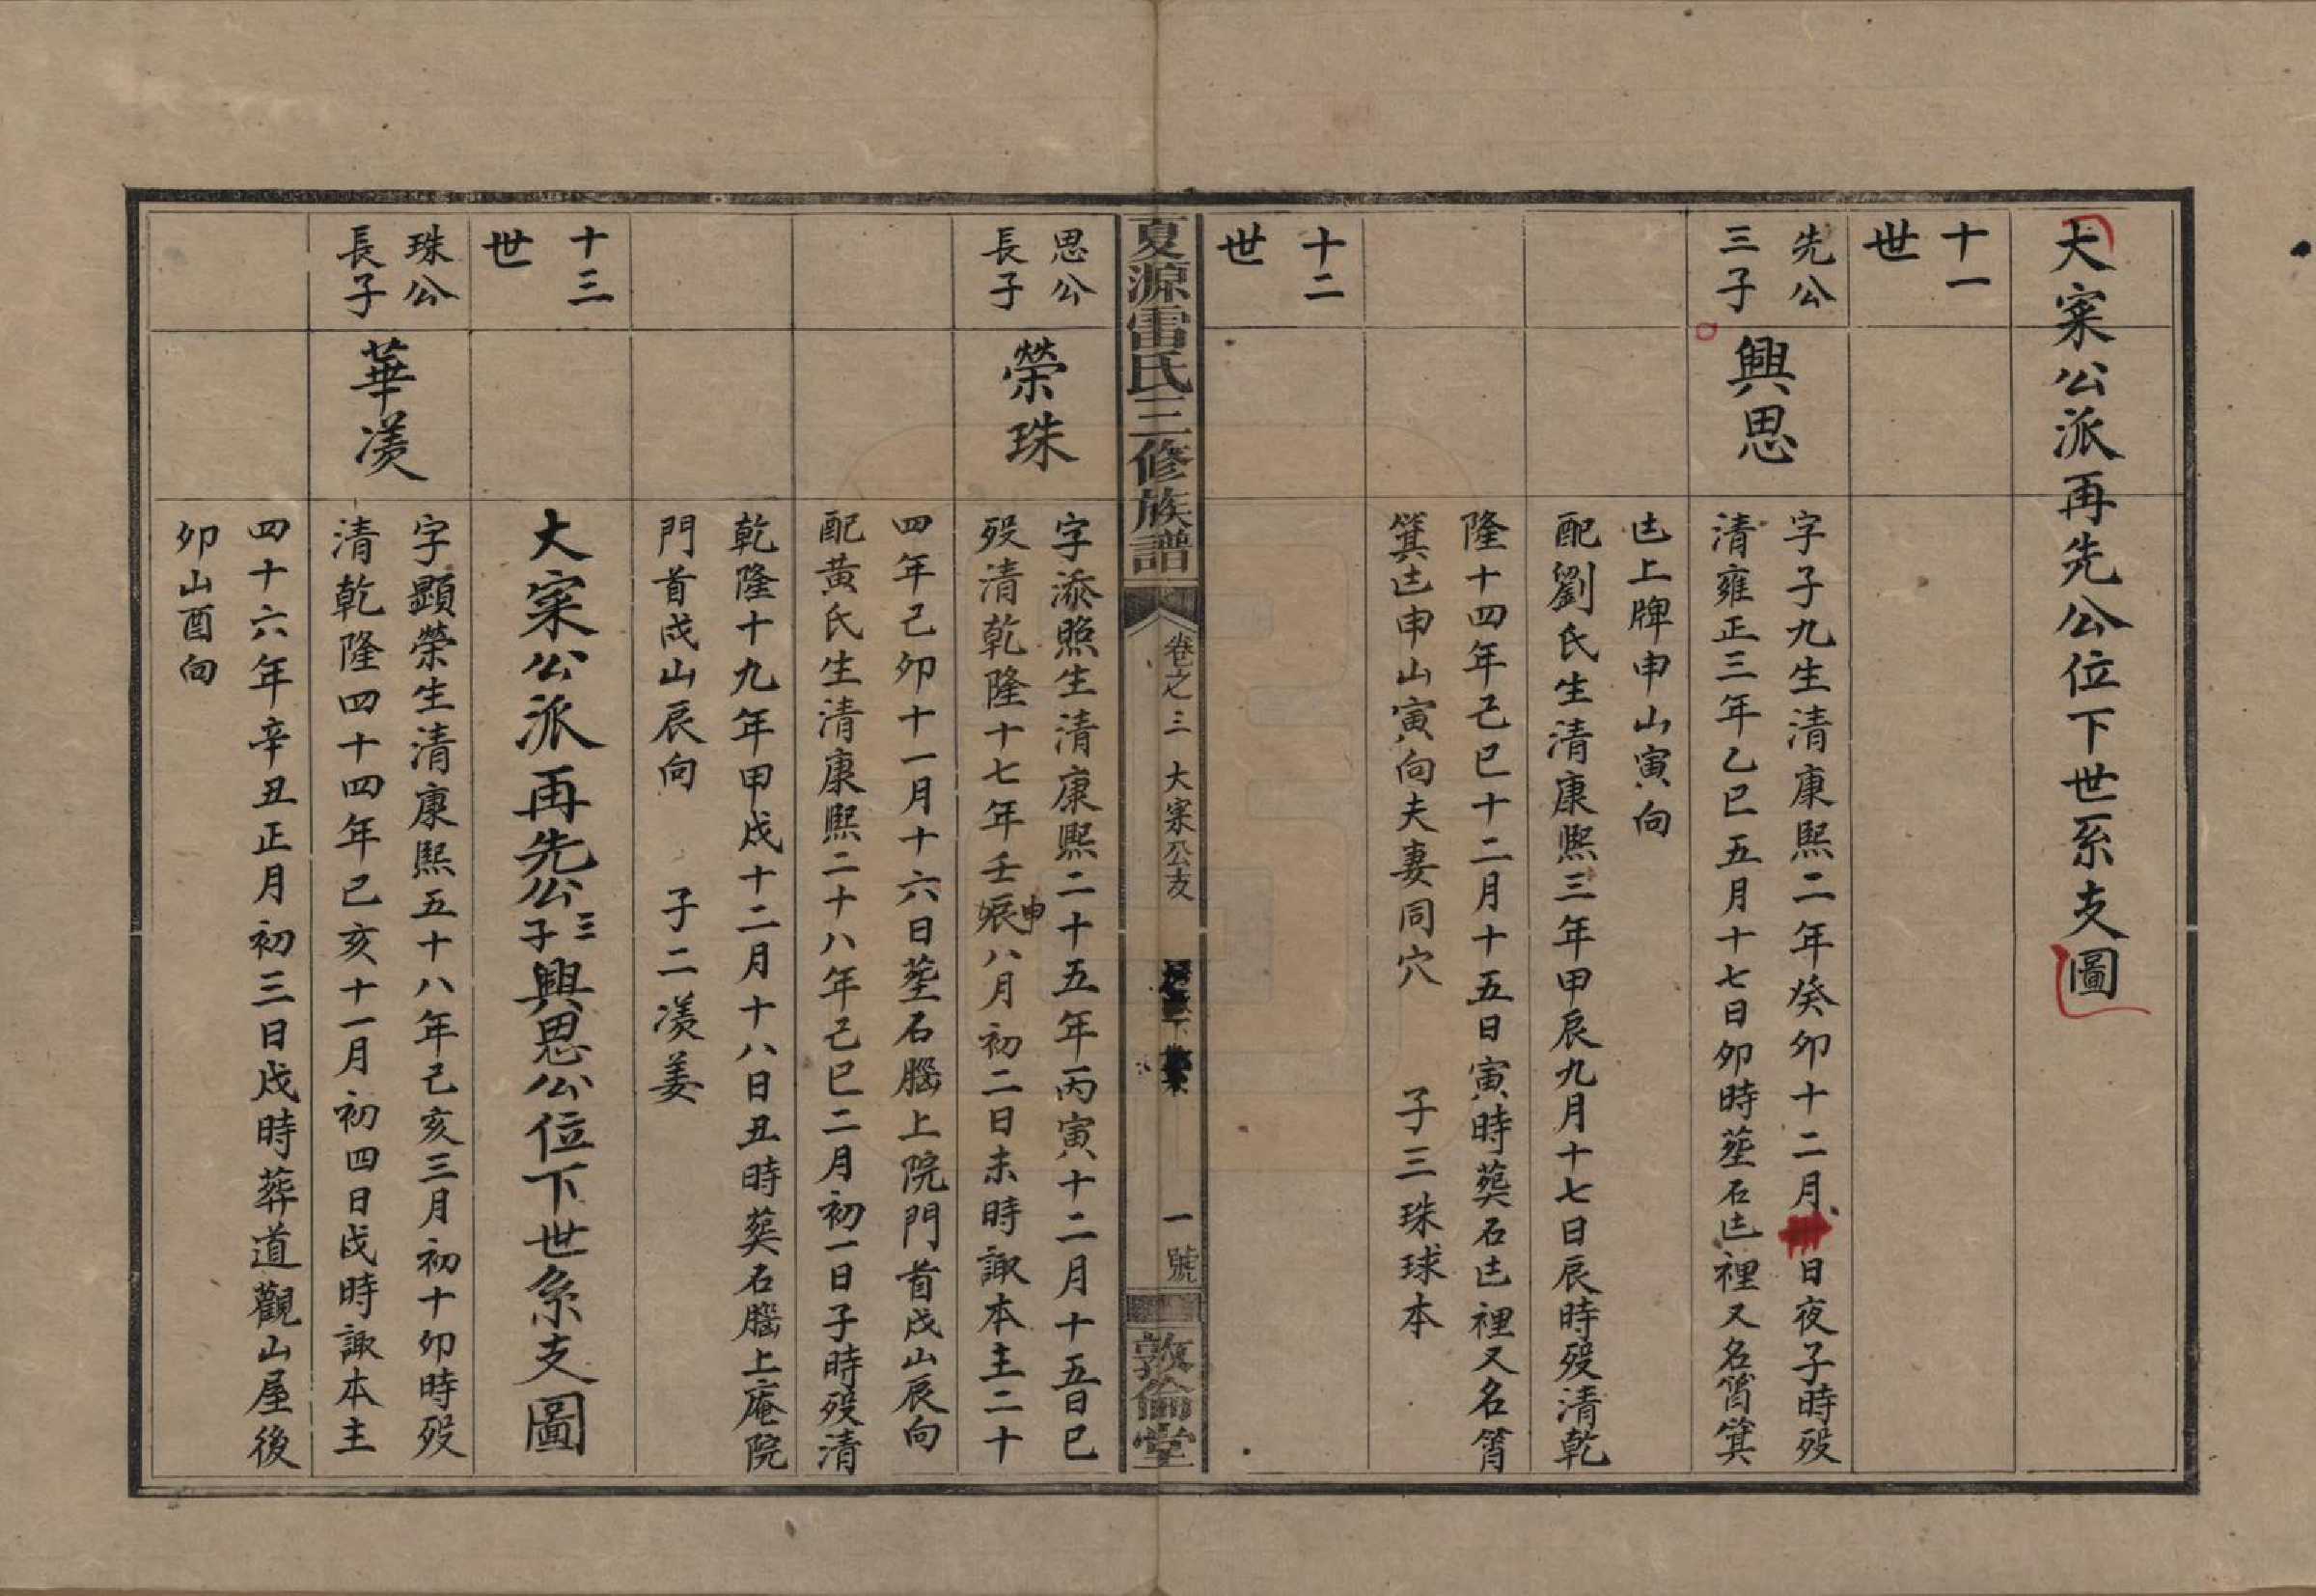 大宷公派再先公位下世系支圖
十一
世
先公
三子
興思
字子九生清康熙二年癸卯十二月日夜子時殁
清雍正三年乙巳五月十七日卯時塟石𠮷裡又名筲箕
𠮷上牌申山寅向
配劉氏生清康熙三年甲辰九月十七日辰時殁清乾
隆十四年己巳十二月十五日寅時葬石𠮷裡又名筲
箕𠮷申山寅向夫妻同穴　子三珠球本
十二
世
夏源雷氏三修族譜
卷之三　大宷公支
一號
敦倫堂
思公
長子
榮珠
字添照生清康熙二十五年丙寅十二月十五日巳
殁清乾隆十七年壬申八月初二日未時諏本主二十
四年己卯十一月十六日塟石腦上院門首戌山辰向
配黄氏生清康熙二十八年己巳二月初一日子時殁清
乾隆十九年甲戌十二月十八日丑時葬石腦上庵院
門首戌山辰向　子二渼姜
大宷公派再先公三子興思公位下世系支圖
十三
世
珠公
長子
華渼
字顯榮生清康熙五十八年己亥三月初十卯時殁
清乾隆四十四年己亥十一月初四日戌時諏本主
四十六年辛丑正月初三日戌時葬道觀山屋後
卯山酉向